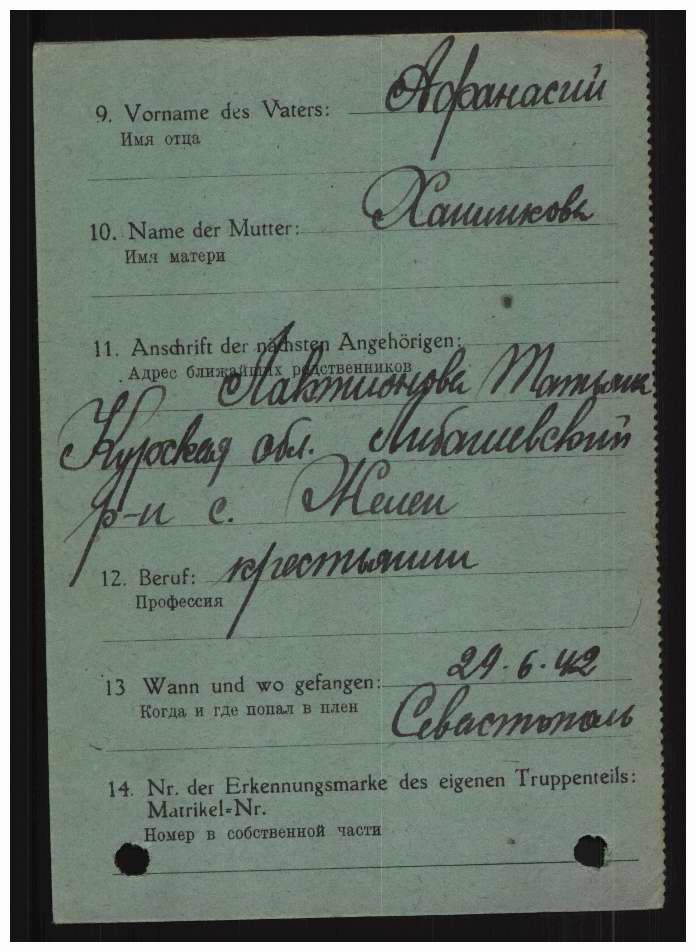 9. Vorname des Vaters: Афанасий
Имя отца
10. Name der Mutter: Хашикова
Имя матери
11. Anschrift der nächsten Angehörigen:
Адрес ближайших родственников
Лактионова Татьяна
Курская обл.
р-н с.
12. Beruf: крестьянин
Профессия
13 Wann und wo gefangen: 29.6.42
Когда и где попал в плен Севастополь
14. Nr. der Erkennungsmarke des eigenen Truppenteils:
Matrikel-Nr.
Номер в собственной части